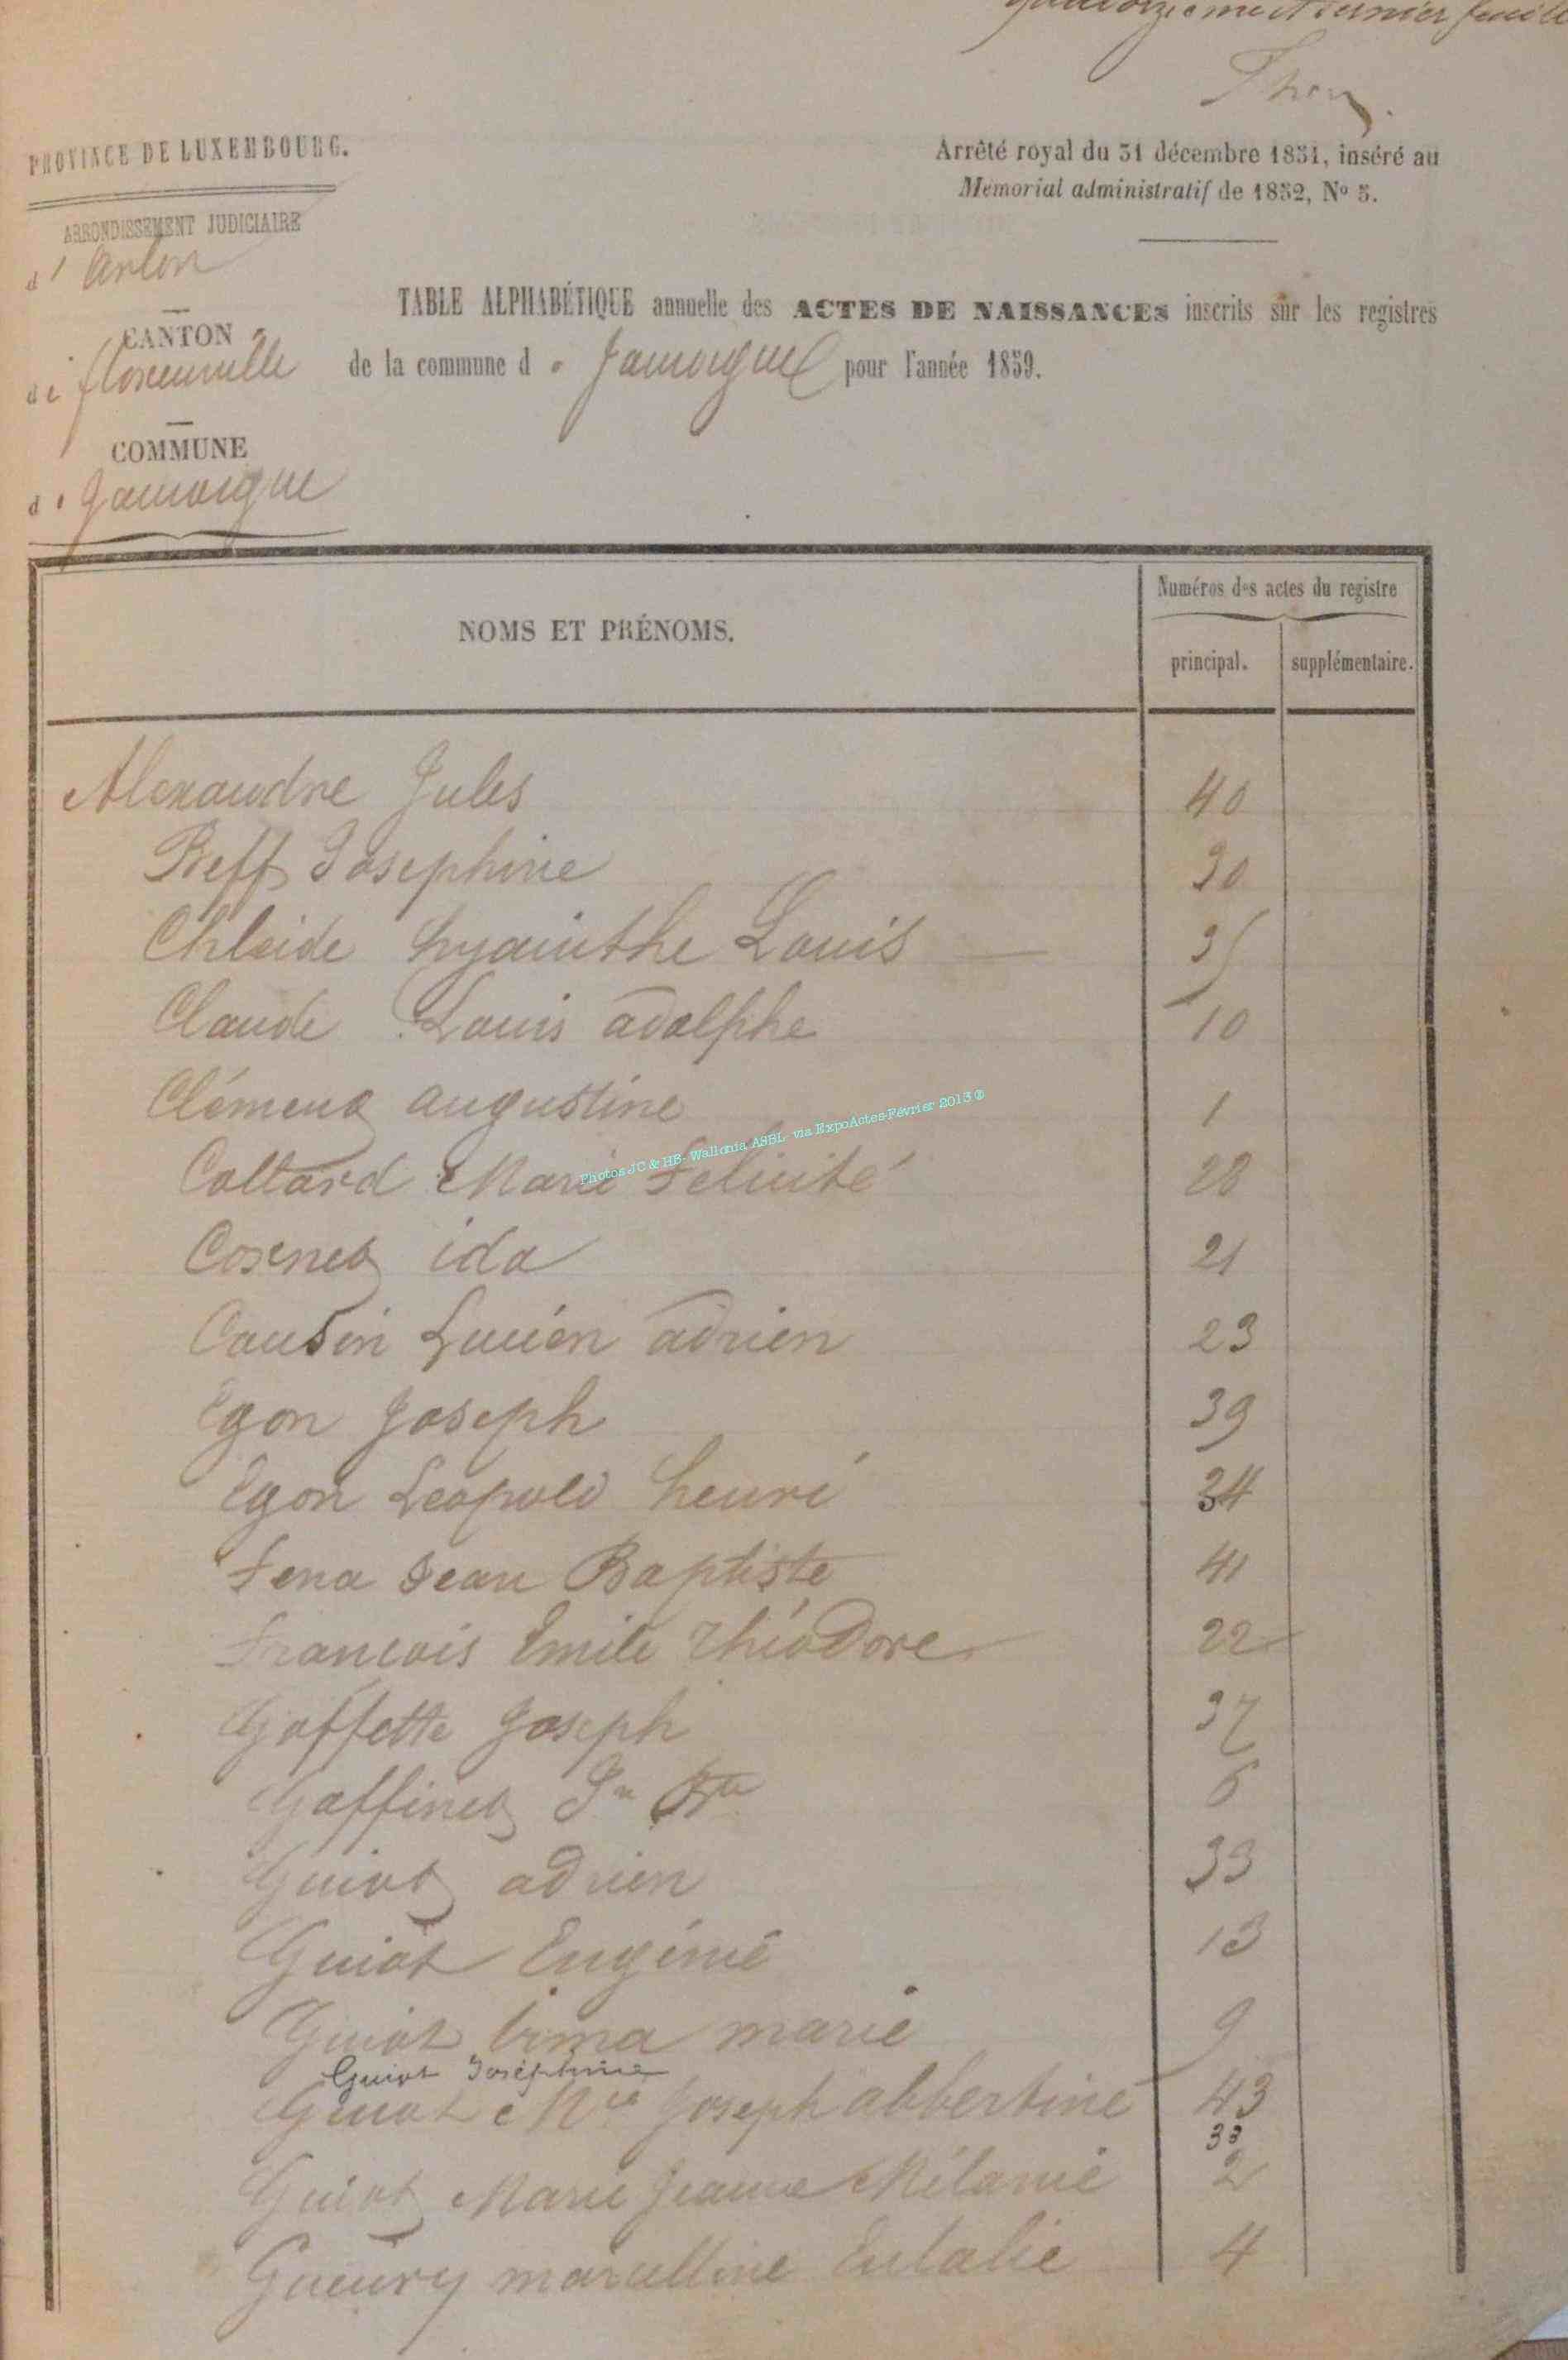 et dernier feuille
PROVINCE DE LUXEMBOURG.
Arrêté royal du 31 décembre 1831, inséré au
Mémorial administratif de 1832, No 5.
ARRONDISSEMENT JUDICIAIRE
d' Arlon
CANTON
de florenville
COMMUNE
de Jamoigne
TABLE ALPHABÉTIQUE annuelle des ACTES DE NAISSANCES inscrits sur les registres
de la commune de Jamoigne pour l'année 1859.
NOMS ET PRÉNOMS.
Numéros des actes du registre
principal. supplémentaire.
Alexandre Jules 40
Beff Josephine 30
Chleide hyacinthe Louis 35
Claude Louis adolphe 10
Clément augustine 1
Collard Marie Felicité 28
Cosnet ida 21
Cousin Lucien adrien 23
Egon Joseph 39
Egon Leopold henri 34
Fena Jean Baptiste 41
François Emile théodore 22
Goffette Joseph 37
Goffinet Jn Bte 6
Guiot adrien 33
Guiot Eugénie 13
Guiot irma marie 9
Guiot Joséphine
Guiot Mie Joseph albertine 43
38
Guiot Marie Jeanne Mélanie 2
Gueury marcelline Eulalie 4
Photos JC & HB- Wallonia ASBL- via ExpoActes-Février 2013 ®